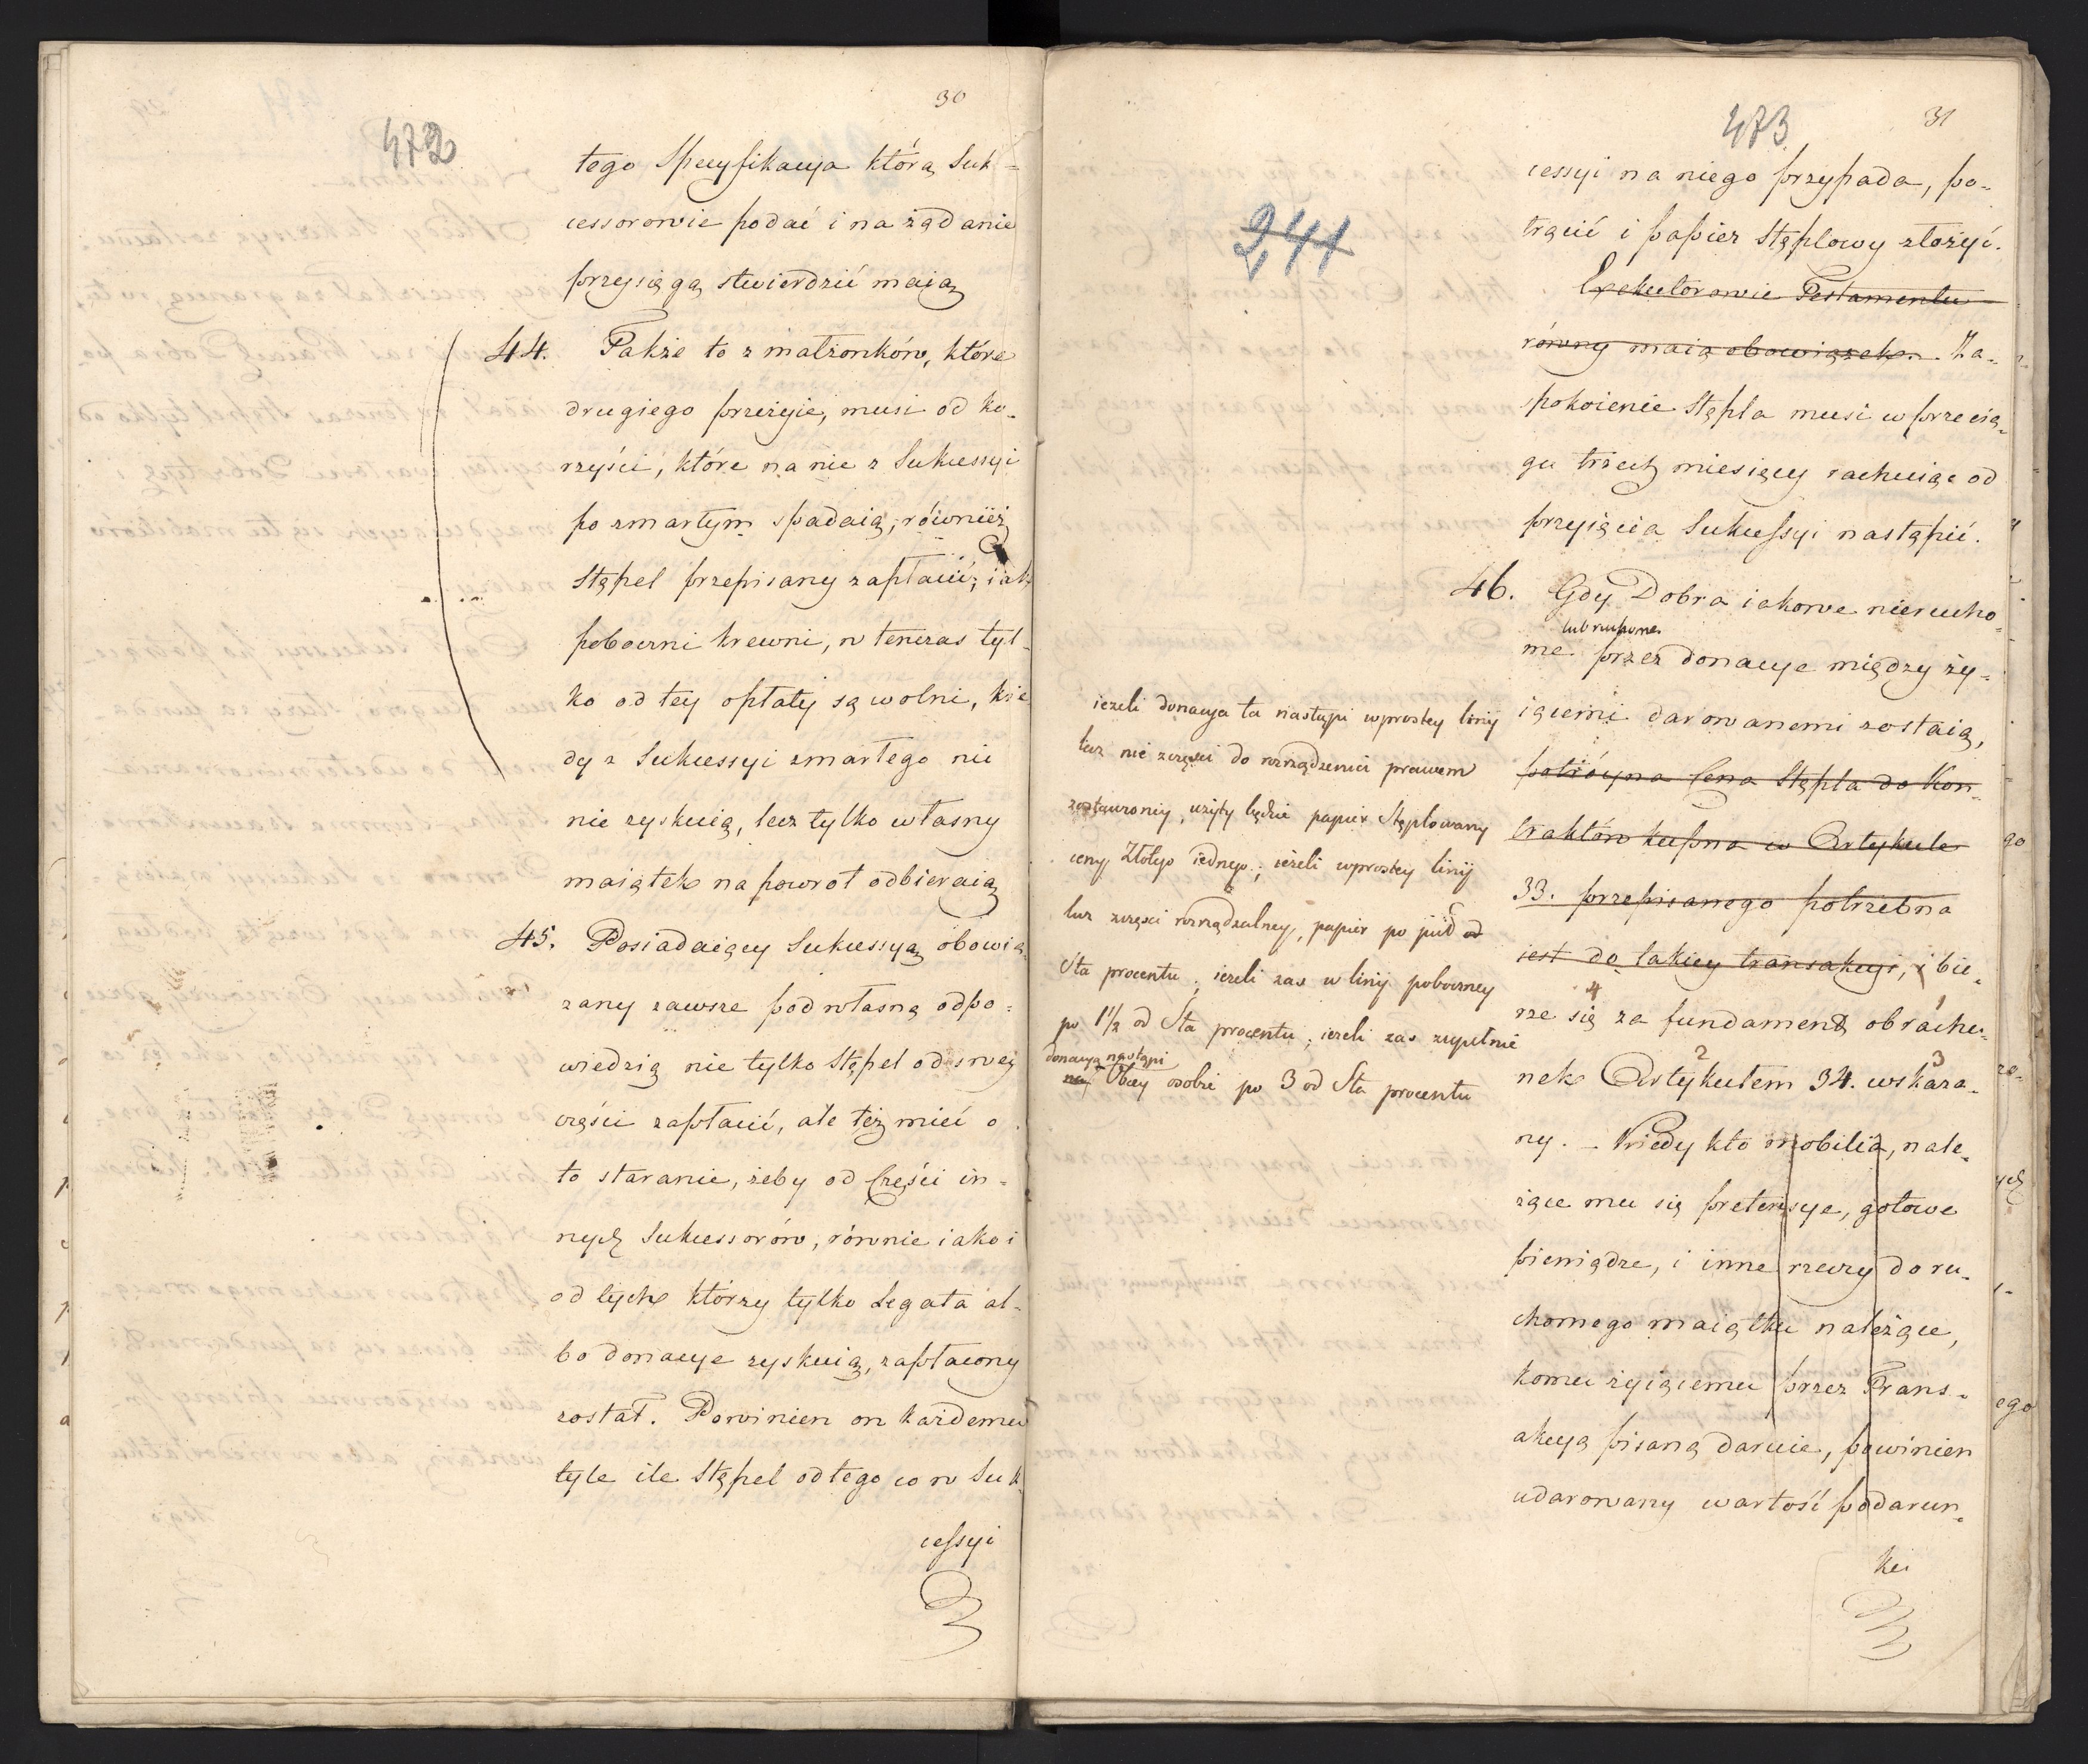 30
472
tego Specyfikacya którą Suk-
cessorowie podać i na żądanie
przysięgą stwierdzić maią
44. Także to z małżonków, które
drugiego przeżyie, musi od ko-
rzyści, które na nie z Sukcessyi
po zmarłym spadaią, równieź
Stępel przepisany zapłacić, iak
poboczni krewni, w tenczas tyl-
ko od tey opłaty są wolni, kie
dy z Sukcessyi zmarłego nic
nie zyskuią, lecz tylko własny
maiątek na powrot odbieraią
45. Posiadaiący Sukcessyą obowią-
zany zawsze pod własną odpo-
wiedzią nie tylko Stępel od swey
części zapłacić, ale też mieć o
to staranie, żeby od Części in-
nych Sukcessorów, równie iako i
od tych którzy tylko Legata al-
bo donacye zyskuią, zapłacony
został. Powinien on każdemu
tyle ile Stępel od tego co w Suk
cessyi
31
473
241
cessyi na niego przypada, po-
trącić i papier Stęplowy złożyć.
Exekutorowie Testamentu
równy maią obowiązek. Za-
pokoienie Stępla musi w przecią-
gu trzech miesięcy rachuiąc od
przyięcia Sukcessyi nastąpić.
46. Gdy Dobra iakowe nierucho-
lub ruchome
me przez donacye między ży-
iącemi darowanemi zostaią,
potróyna Cena Stępla do Kon-
traktów kupna w Artykule
33. przepisanego potrzebna
iest do takiey transakcyi, i bie-
4 1
rze się za fundament obrachu-
2 3
nek Artykułem 34. wskaza-
ny. - Kiedy kto mobilia, nale-
żące mu się pretensye, gotowe
pieniądze, i inne rzeczy do ru-
chomego maiątku należące,
komu żyiącemu przez Trans-
akcyą pisaną daruie, powinien
udarowany wartość podarun-
ku
ieżeli donacya ta nastąpi w prostey linij
lecz nie z części do rozrządzenia prawem
zostawioney, użyty będzie papier Stęplowany
ceny Złotego iednego; ieżeli w prostey linij
lecz z części rozrządzalney, papier po puł od
Sta procentu; ieżeli zas w linij poboczney
po 1 1/2 od Sta procentu; ieżeli zas zupełnie
donacya nastąpi
Obcey osobie po 3 od Sta procentu